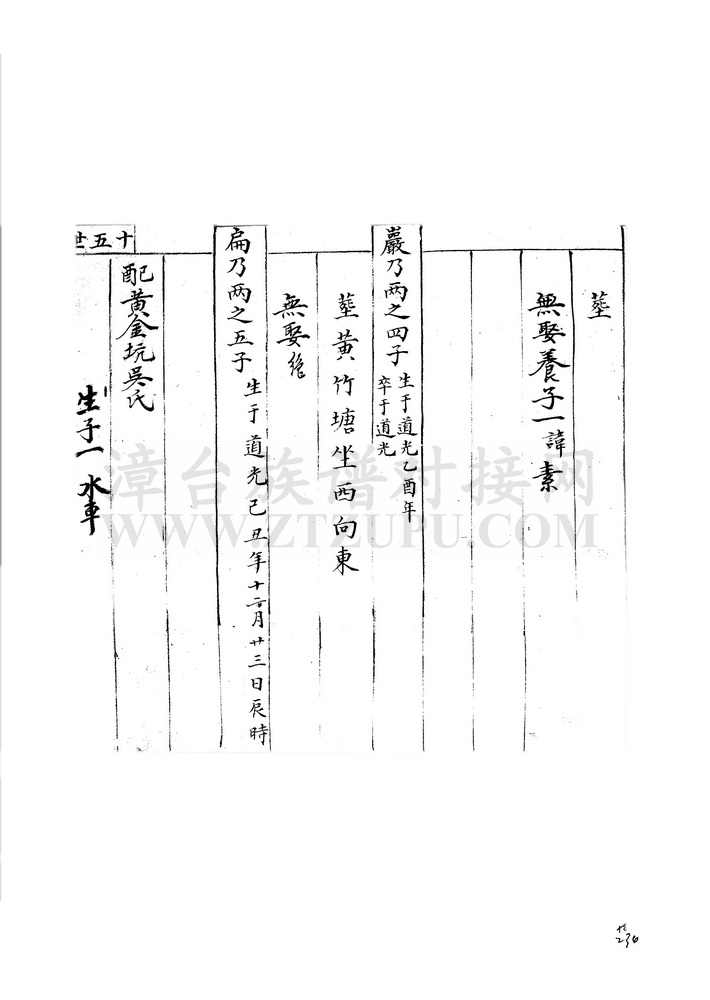 塟
無娶養子一諱素
巖乃两之四子
生于道光乙酉年
卒于道光
塟黃竹塘坐西向東
無娶絶
扁乃两之五子
生于道光己丑年十二月廿三日辰時
十五世
配黃金坑吳氏
生子一水車
漳台族谱对接网
WWW.ZTZUPU.COM
236